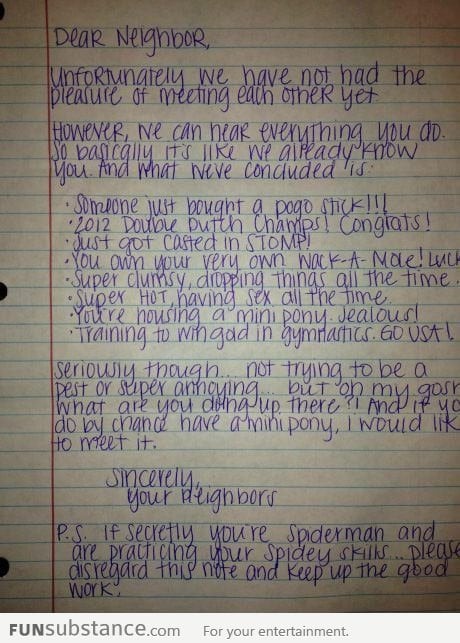 Dear Neighbor,
Unfortunately we have not had the
pleasure of meeting each other yet.
However, we can hear everything you do.
So basically it's like we already know
you. And what we've concluded is:
· Someone just bought a pogo stick!!!
· 2012 Double Dutch Champs! Congrats!
· Just got casted in STOMP!
· You own your very own Wack-A-Mole! Luck
· Super clumsy, dropping things all the time.
· Super HOT, having sex all the time.
· You're housing a mini pony. Jealous!
· Training to win gold in gymnastics. GO USA!
Seriously though... not trying to be a
pest or super annoying... but oh my gosh
what are you doing up there?! And if yo
do by chance have a mini pony, I would lik
to meet it.
Sincerely,
Your Neighbors
P.S. If secretly you're Spiderman and
are practicing your spidey skills... please
disregard this note and keep up the good
work.
FUNsubstance.com For your entertainment.